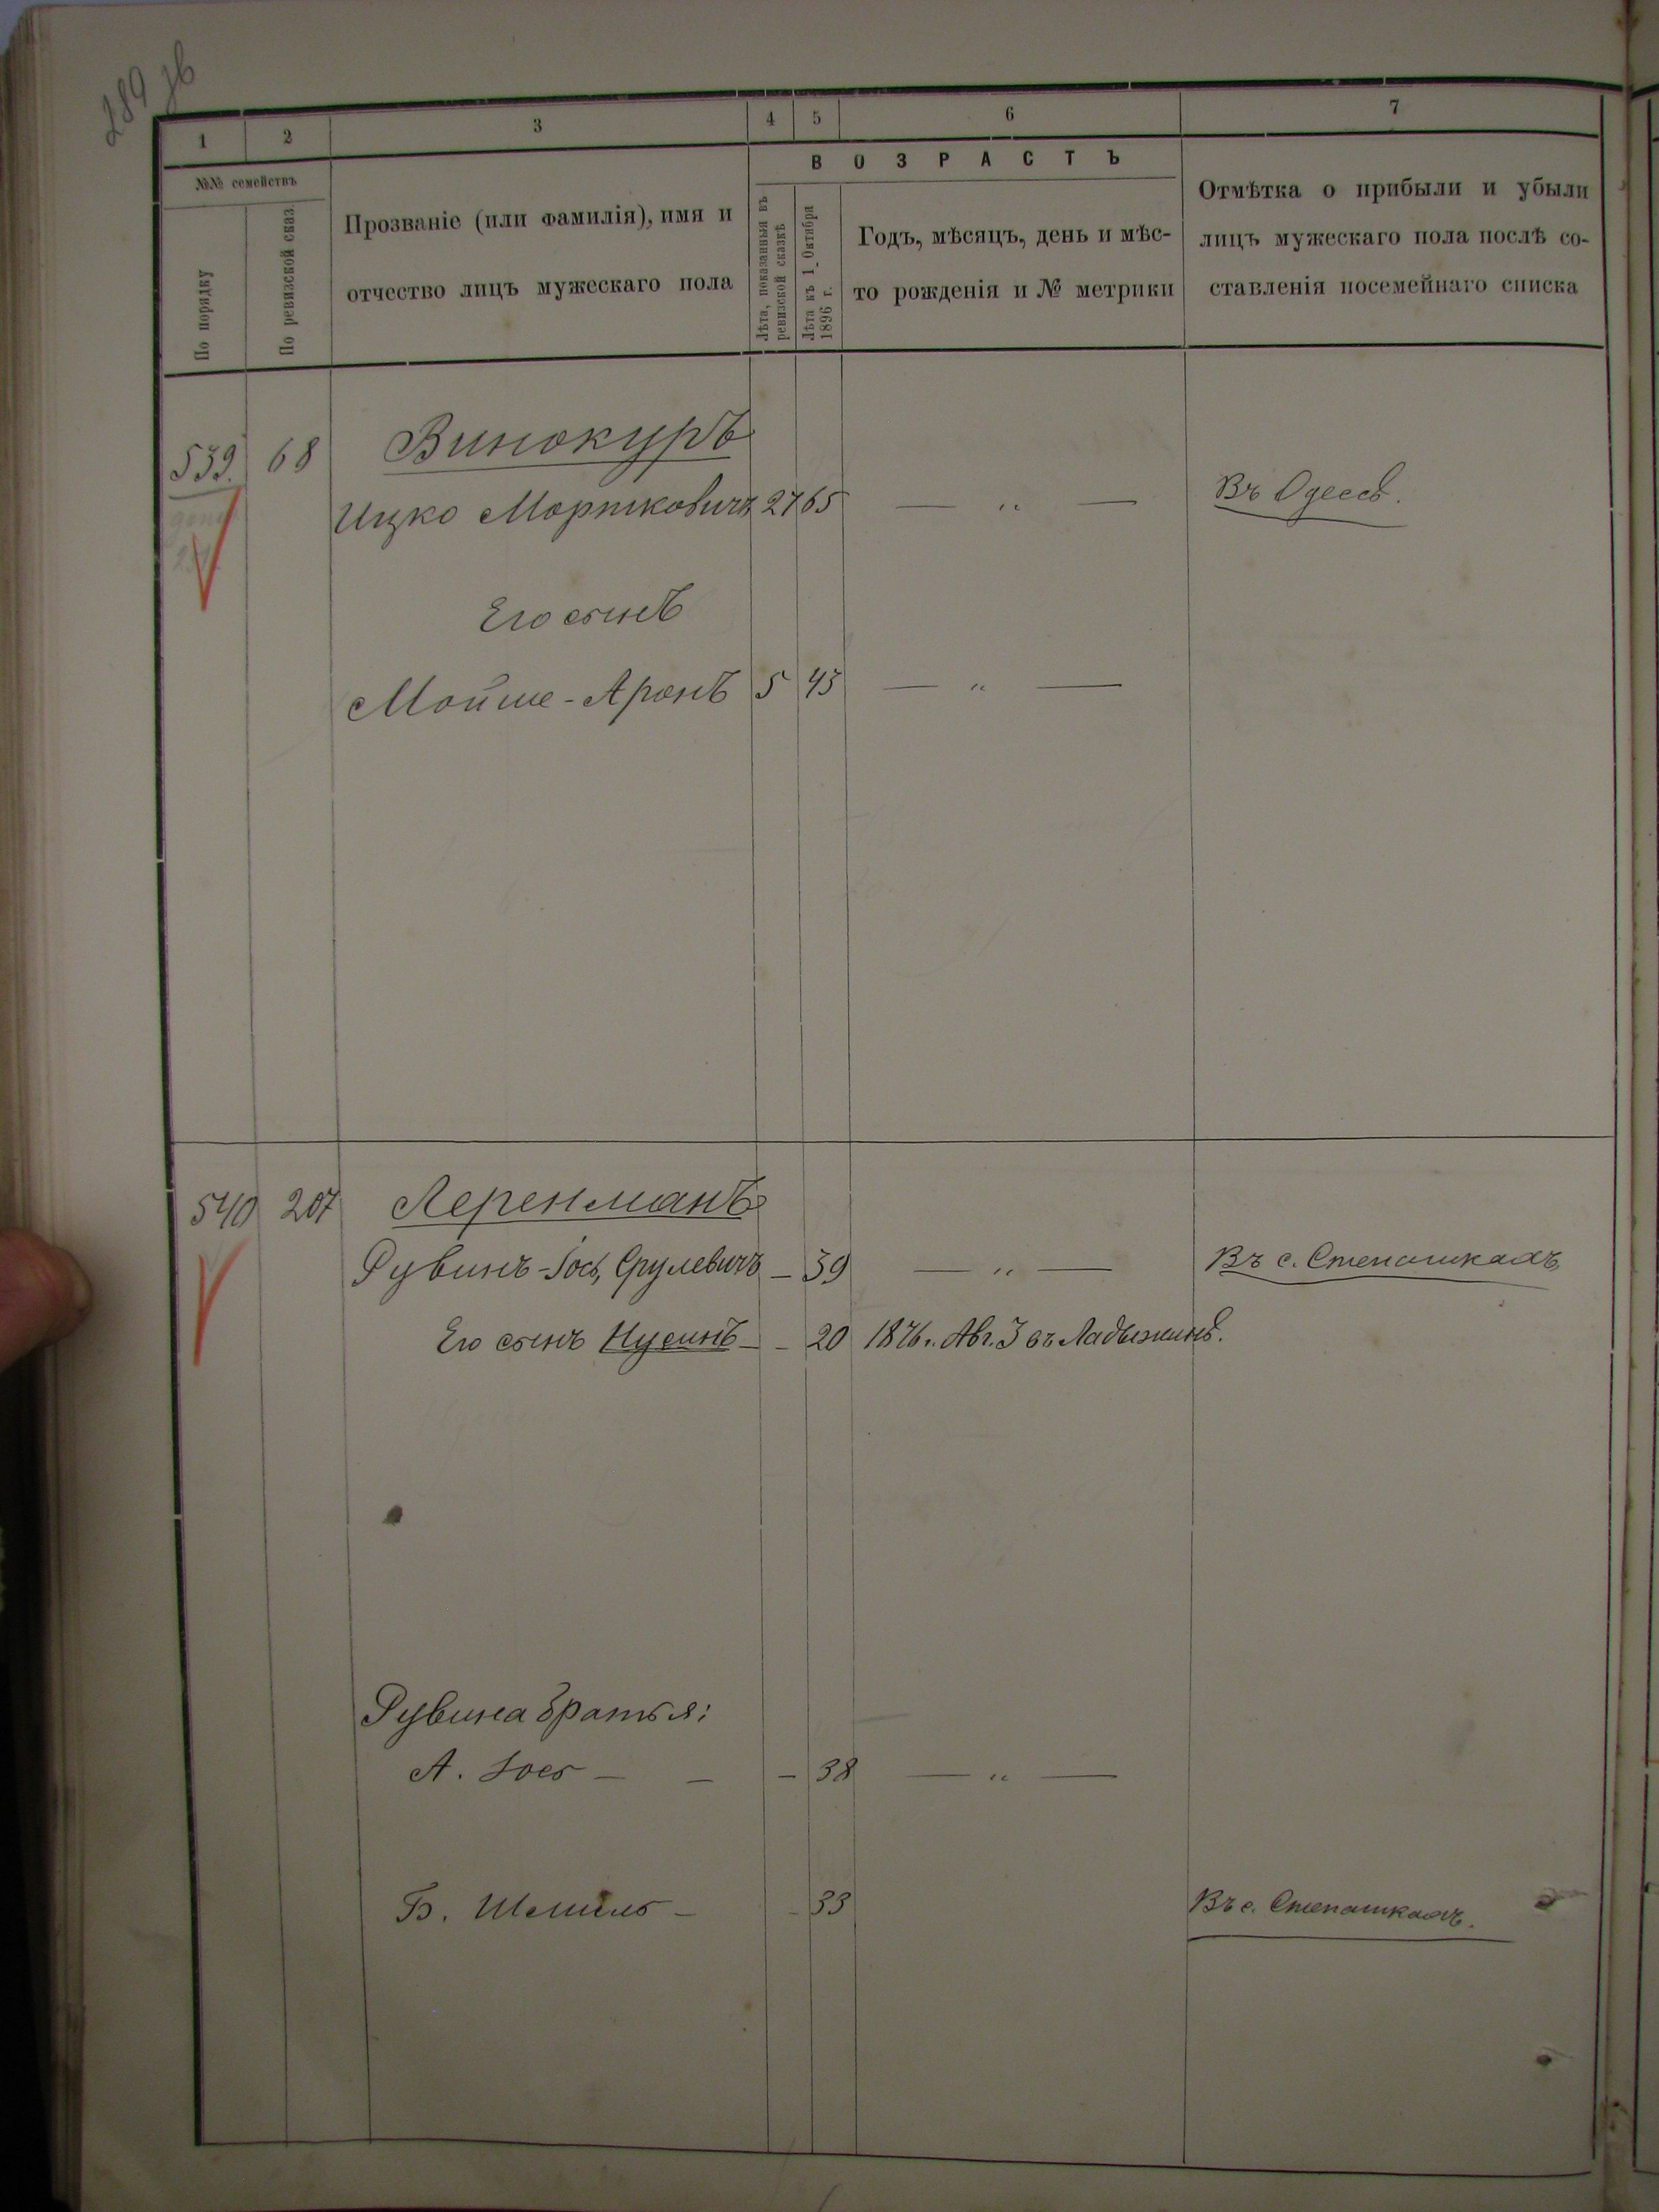 289 зв
1 2 3 4 5 6 7
№№ семействъ
По порядку
По ревизской сказ.
Прозваніе (или фамилія), имя и
отчество лицъ мужескаго пола
ВОЗРАСТЪ
Лѣта, показанныя въ
ревизской сказкѣ
Лѣта къ 1 Октября
1896 г.
Годъ, мѣсяцъ, день и мѣс-
то рожденія и № метрики
Отмѣтка о прибыли и убыли
лицъ мужескаго пола послѣ со-
ставленія посемейнаго списка
539. 68 Винокуръ
Ицко Мортковичъ 27 65 — „ — Въ Одессѣ.
Его сынъ
Мойше-Аронъ 5 43 — „ —
540 207 Леренманъ
Рувинъ-Іось Срулевичъ — 39 — „ — Въ с. Степашкахъ
Его сынъ Нусинъ — — 20 1876 г. Авг. 3 въ Ладыжинѣ.
Рувина братья:
А. Іось — — — 38 — „ —
Б. Шмиль — - 33 Въ с. Степашкахъ.